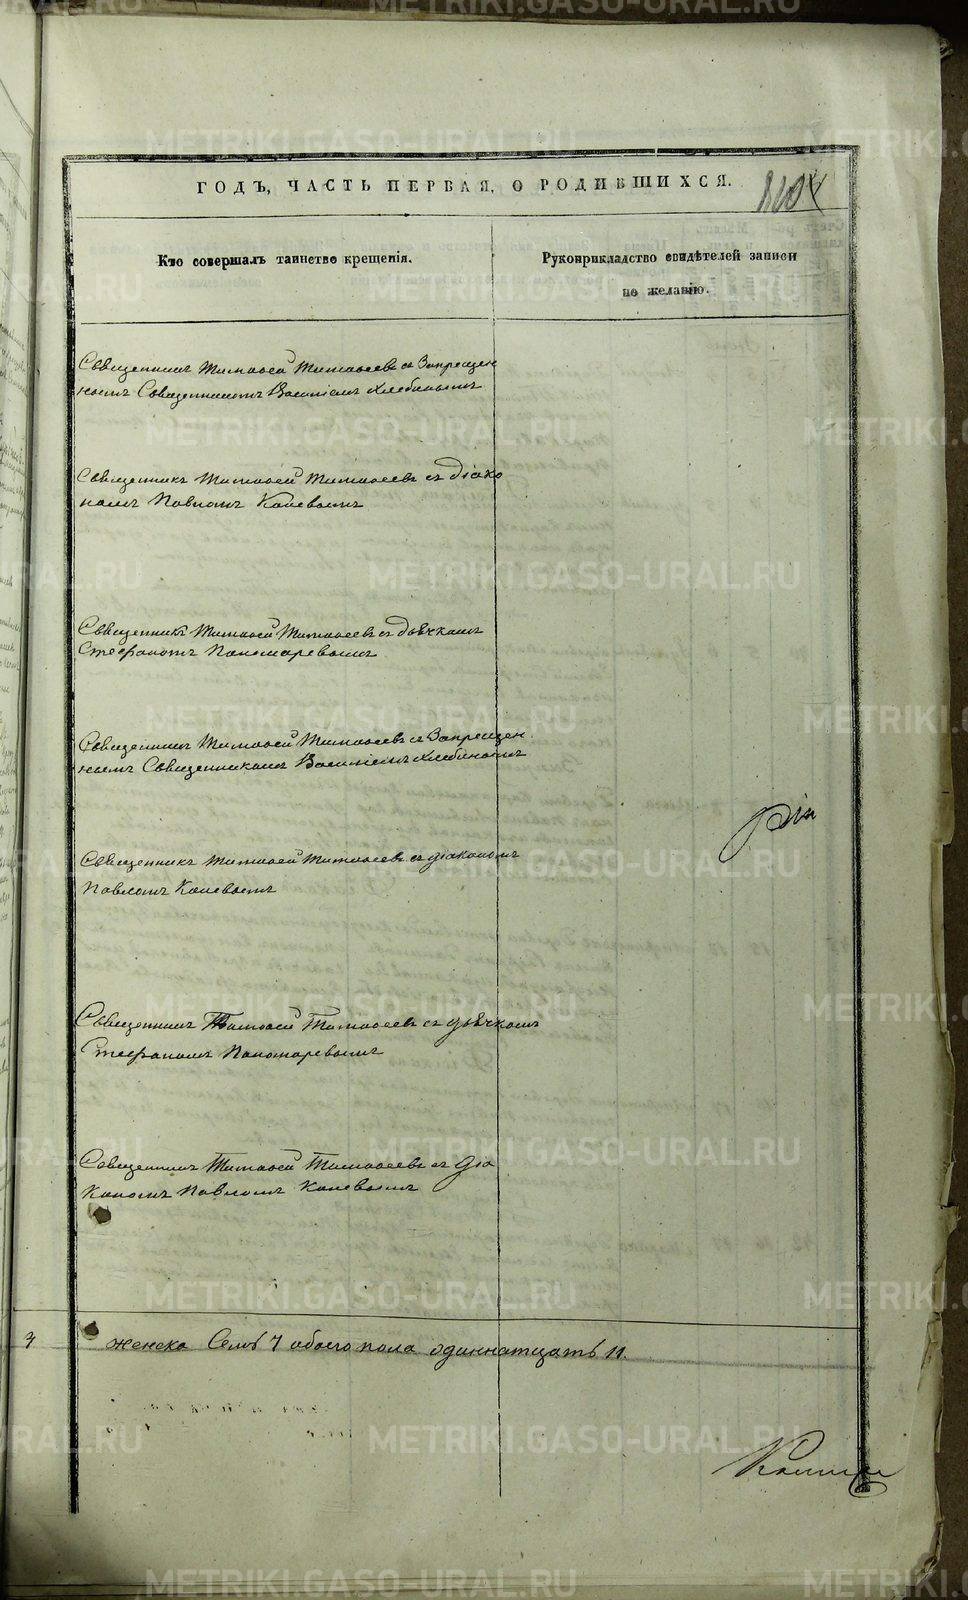 ГОДЪ, ЧАСТЬ ПЕРВАЯ, О РОДИВШИХСЯ.
Кто совершалъ таинство крещенія.
Рукоприкладство свидѣтелей записи
по желанію.
Священникъ Тимофей Тимофеевъ съ Запрещен
нымъ Священникомъ Василіемъ Хлебинымъ
Священникъ Тимофей Тимофеевъ съ діако
номъ Павломъ Калевымъ
Священникъ Тимофей Тимофеевъ съ дьячкомъ
Стефаномъ Пономаревымъ
Священникъ Тимофей Тимофеевъ съ Запрещен
нымъ Священникомъ Василіемъ Хлебинымъ
Священникъ Тимофей Тимофеевъ съ діакономъ
Павломъ Калевымъ
Священникъ Тимофей Тимофеевъ съ дьячкомъ
Стефаномъ Пономаревымъ
Священникъ Тимофей Тимофеевъ съ діа
кономъ Павломъ Калевымъ
женска Семь 7 обоего пола одиннатцать 11.
METRIKI.GASO-URAL.RU